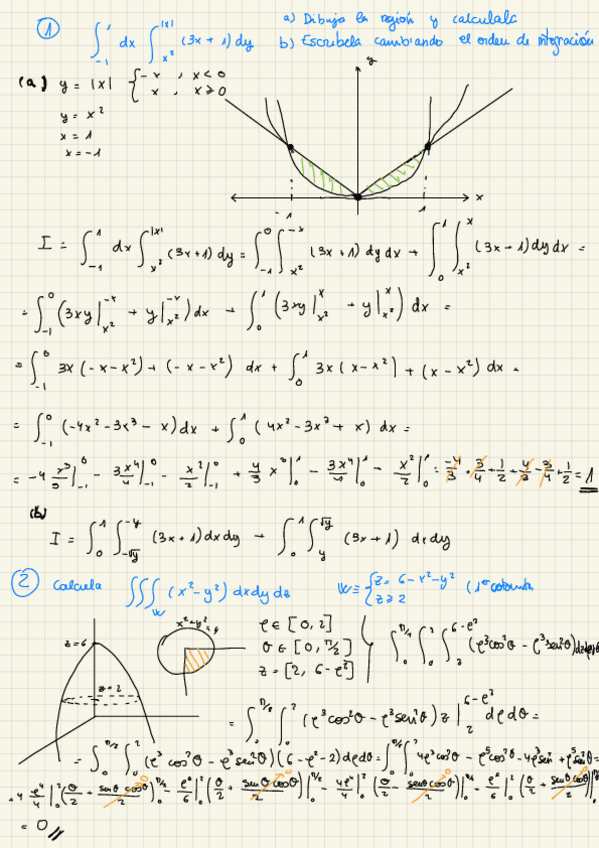 ① ∫₋₁¹ dx ∫ₓ²^|x| (3x+1) dy a) Dibuja la región y calculala
b) Escribela cambiando el orden de integración
(a) y = |x| { -x , x<0
x , x≥0
y = x²
x = 1
x = -1
y
x
-1 1
I = ∫₋₁¹ dx ∫ₓ²^|x| (3x+1) dy = ∫₋₁⁰ ∫ₓ²^-x (3x+1) dy dx + ∫₀¹ ∫ₓ²^x (3x+1) dy dx =
= ∫₋₁⁰ (3xy|ₓ²^-x + y|ₓ²^-x) dx + ∫₀¹ (3xy|ₓ²^x + y|ₓ²^x) dx =
= ∫₋₁⁰ 3x(-x-x²) + (-x-x²) dx + ∫₀¹ 3x(x-x²) + (x-x²) dx =
= ∫₋₁⁰ (-4x² - 3x³ - x) dx + ∫₀¹ (4x² - 3x³ + x) dx =
= -4 x³/3|₋₁⁰ - 3x⁴/4|₋₁⁰ - x²/2|₋₁⁰ + 4/3 x³|₀¹ - 3x⁴/4|₀¹ - x²/2|₀¹ = -4/3 + 3/4 + 1/2 + 4/3 - 3/4 + 1/2 = 1
(b)
I = ∫₀¹ ∫₋√y^-y (3x+1) dx dy + ∫₀¹ ∫y^√y (3x+1) dx dy
② Calcula ∫∫∫w (x²-y²) dx dy dz W ≡ { z = 6-x²-y² (1er octante)
z ≥ 2
z=6
z=2
x²+y²=4
ρ ∈ [0, 2]
θ ∈ [0, π/2]
z = [2, 6-ρ²]
∫₀^π/2 ∫₀² ∫₂^6-ρ² (ρ³cos²θ - ρ³sen²θ) dz dρ dθ
= ∫₀^π/2 ∫₀² (ρ³cos²θ - ρ³sen²θ) z |₂^6-ρ² dρ dθ =
= ∫₀^π/2 ∫₀² (ρ³cos²θ - ρ³sen²θ)(6-ρ²-2) dρ dθ = ∫₀^π/2 ∫₀² 4ρ³cos²θ - ρ⁵cos²θ - 4ρ³sen² + ρ⁵sen²θ =
= 4 ρ⁴/4|₀² (θ/2 + senθ cosθ/2)|₀^π/2 - ρ⁶/6|₀² (θ/2 + senθ cosθ/2)|₀^π/2 - 4ρ⁴/4|₀² (θ/2 - senθ cosθ/2)|₀^π/2 - ρ⁶/6|₀² (θ/2 + senθ cosθ/2)|₀^π/2
= 0